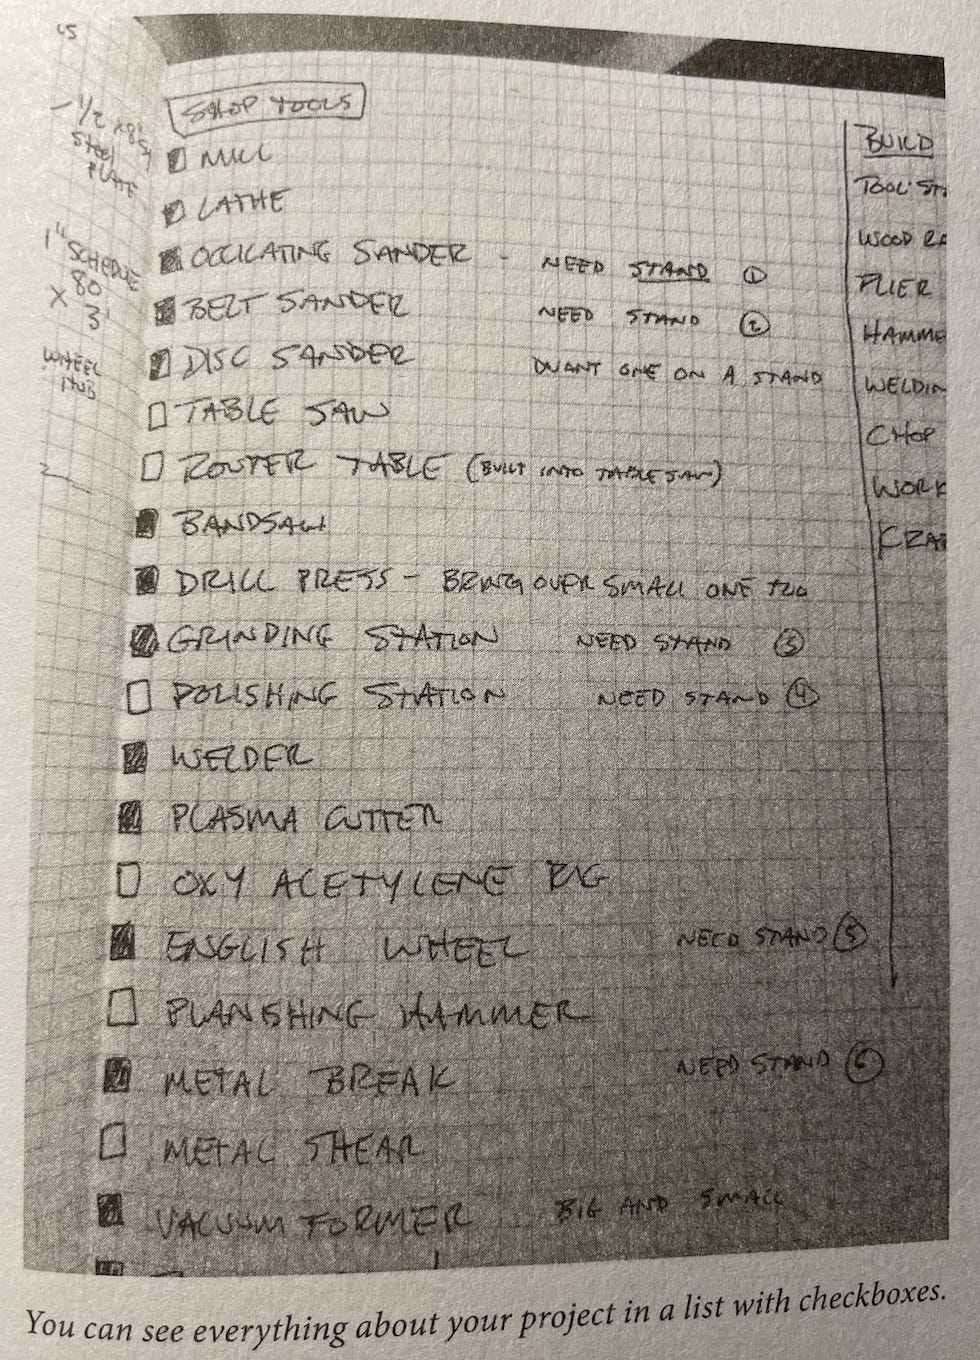 45
1/2 x 8'
STEEL
PLATE
1" SCHEDUE
80
X 3'
WHEEL
HUB
SHOP TOOLS
MILL
LATHE
OCCILATING SANDER - NEED STAND ①
BELT SANDER NEED STAND ②
DISC SANDER WANT ONE ON A STAND
TABLE SAW
ROUTER TABLE (BUILT INTO TABLE SAW)
BANDSAW
DRILL PRESS - BRING OVER SMALL ONE TOO
GRINDING STATION NEED STAND ③
POLISHING STATION NEED STAND ④
WELDER
PLASMA CUTTER
OXY ACETYLENE RIG
ENGLISH WHEEL NEED STAND ⑤
PLANISHING HAMMER
METAL BREAK NEED STAND ⑥
METAL SHEAR
VACUUM FORMER BIG AND SMALL
BUILD
TOOL ST
WOOD RA
PLIER
HAMME
WELDIN
CHOP
WORK
CRA
You can see everything about your project in a list with checkboxes.